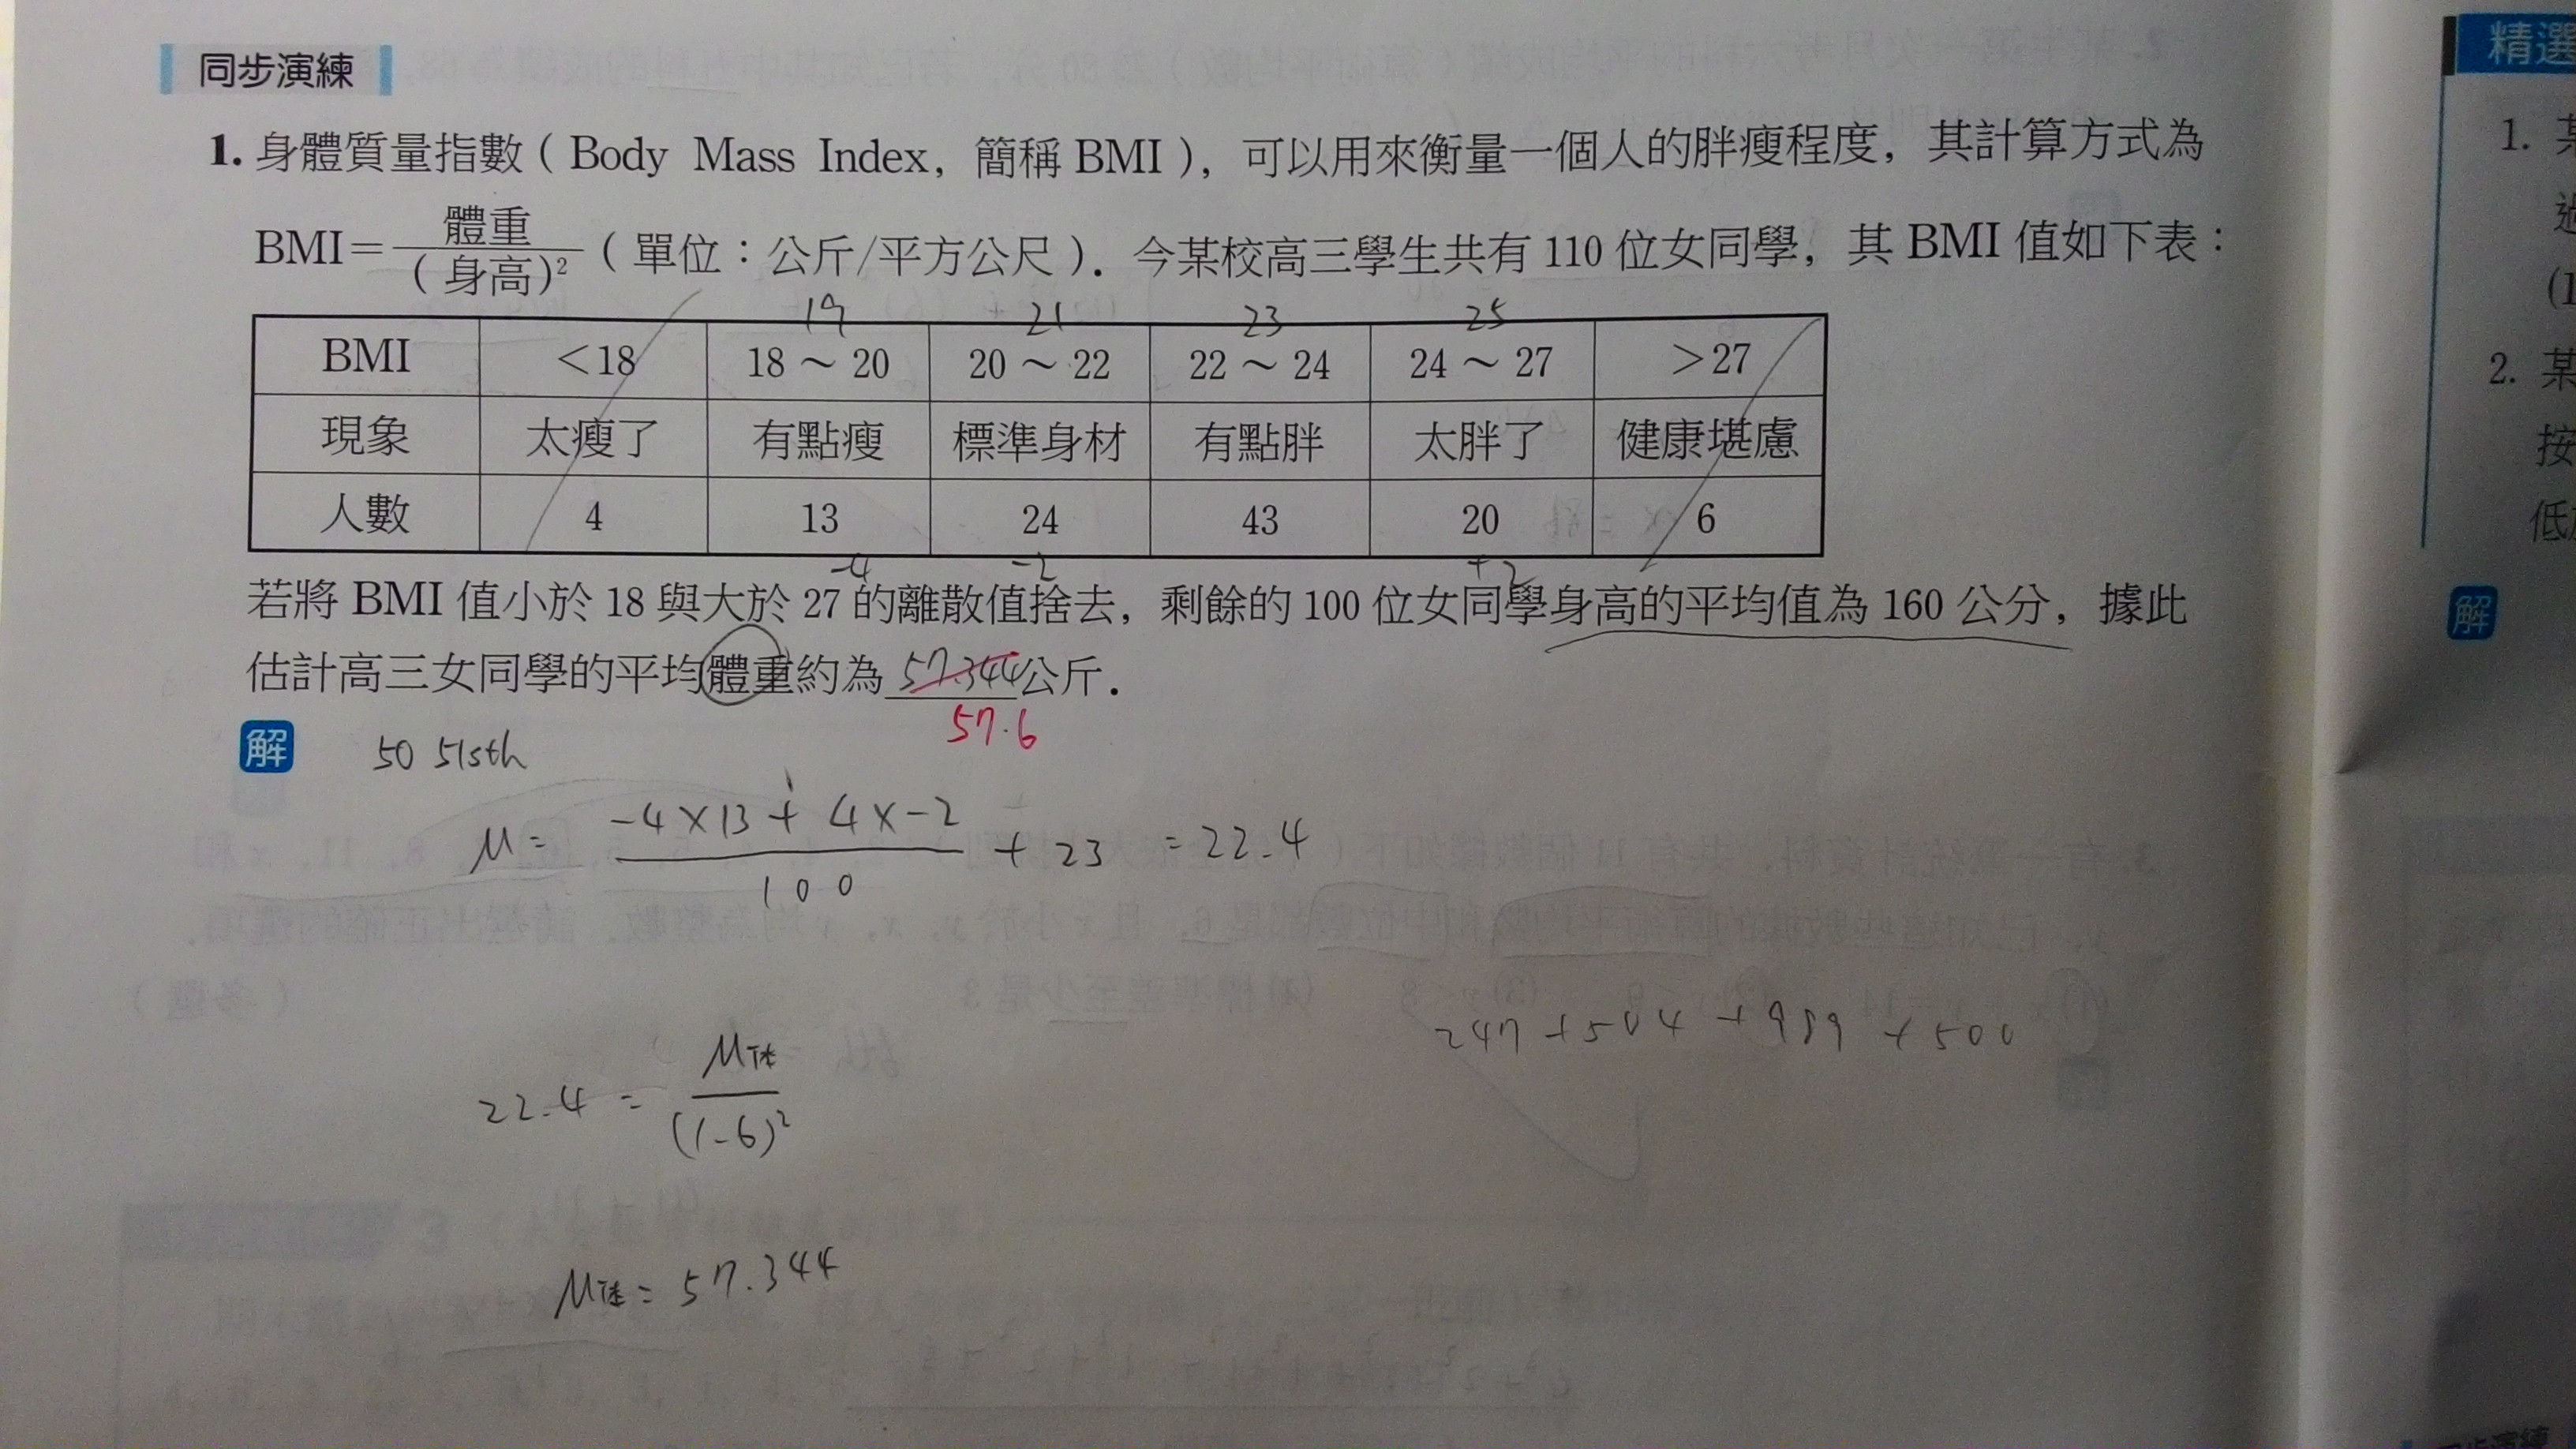 同步演練
精選
1. 身體質量指數（Body Mass Index，簡稱 BMI），可以用來衡量一個人的胖瘦程度，其計算方式為
BMI＝體重/(身高)²（單位：公斤/平方公尺）．今某校高三學生共有 110 位女同學，其 BMI 值如下表：
19 21 23 25
BMI <18 18～20 20～22 22～24 24～27 >27
現象 太瘦了 有點瘦 標準身材 有點胖 太胖了 健康堪慮
人數 4 13 24 43 20 6
-4 -2 +2
若將 BMI 值小於 18 與大於 27 的離散值捨去，剩餘的 100 位女同學身高的平均值為 160 公分，據此
估計高三女同學的平均體重約為 57.344 公斤．
57.6
解 50 51sth
μ = (-4×13 + 4×-2)/100 + 23 = 22.4
247 + 504 + 989 + 500
22.4 = μ体/(1.6)²
μ体 = 57.344
1.
(1
2. 某
按
低
解